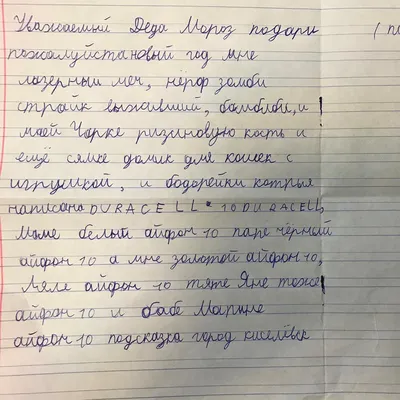 Уважаемый Деда Мороз подари (по
пожалуйстановый год мне
лазерный меч, нёрф зомби
страйк выживший, бамблби, и !
маей Чарке ризиновую кость и
ещё сямке домик для кошек с
игрушкой, и бодорейки котрыя
написана DURACELL 10 DURACELL,
Маме белый айфон 10 папе чёрный
айфон 10 а мне золотой айфон 10,
Ляле айфон 10 тяте Яне тоже
айфон 10 и бабе Марине
айфон 10 подсказка город киселёвск